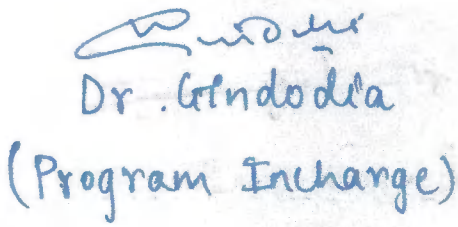 Dr. Gindodia
(Program Incharge)